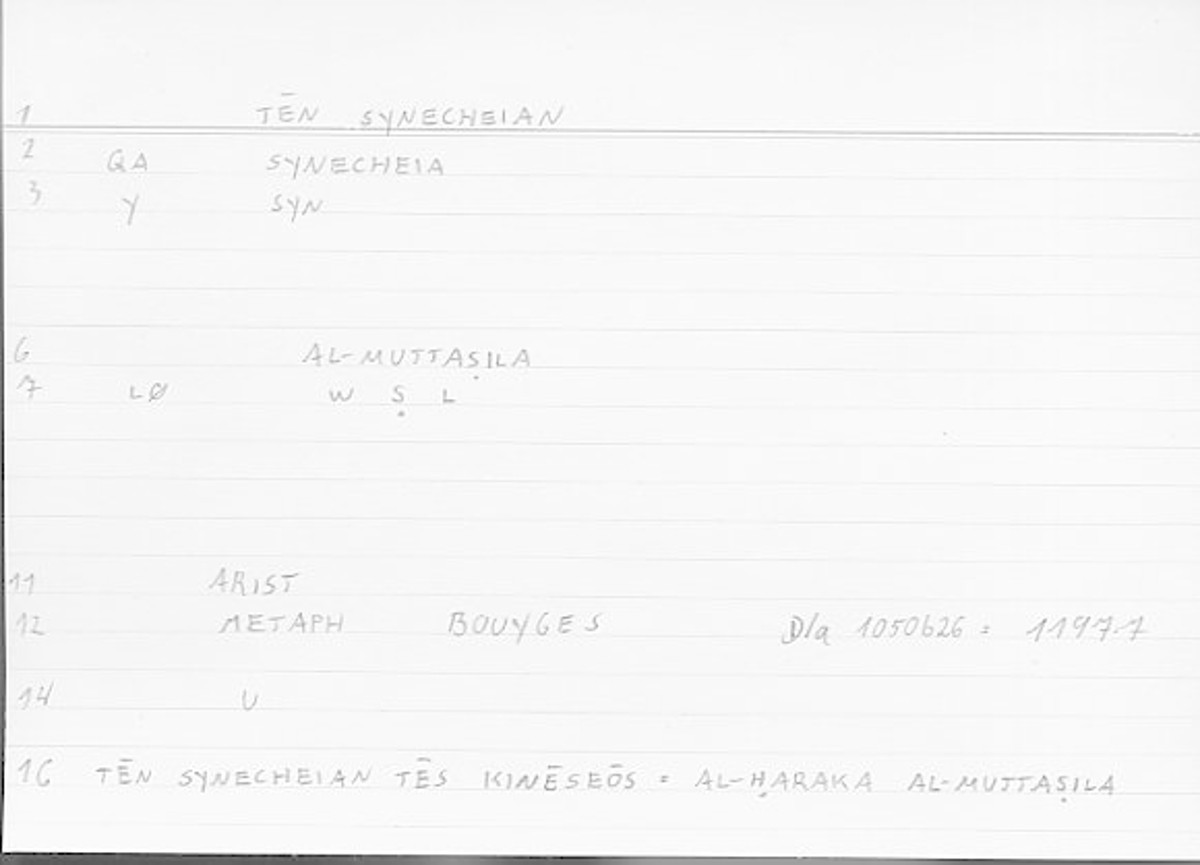 1 TĒN SYNECHEIAN
2 QA SYNECHEIA
3 Y SYN
6 AL-MUTTAṢILA
7 LØ W Ṣ L
11 ARIST
12 METAPH BOUYGES D/a 1050b26 = 1197.7
14 U
16 TĒN SYNECHEIAN TĒS KINĒSEŌS = AL-ḤARAKA AL-MUTTAṢILA